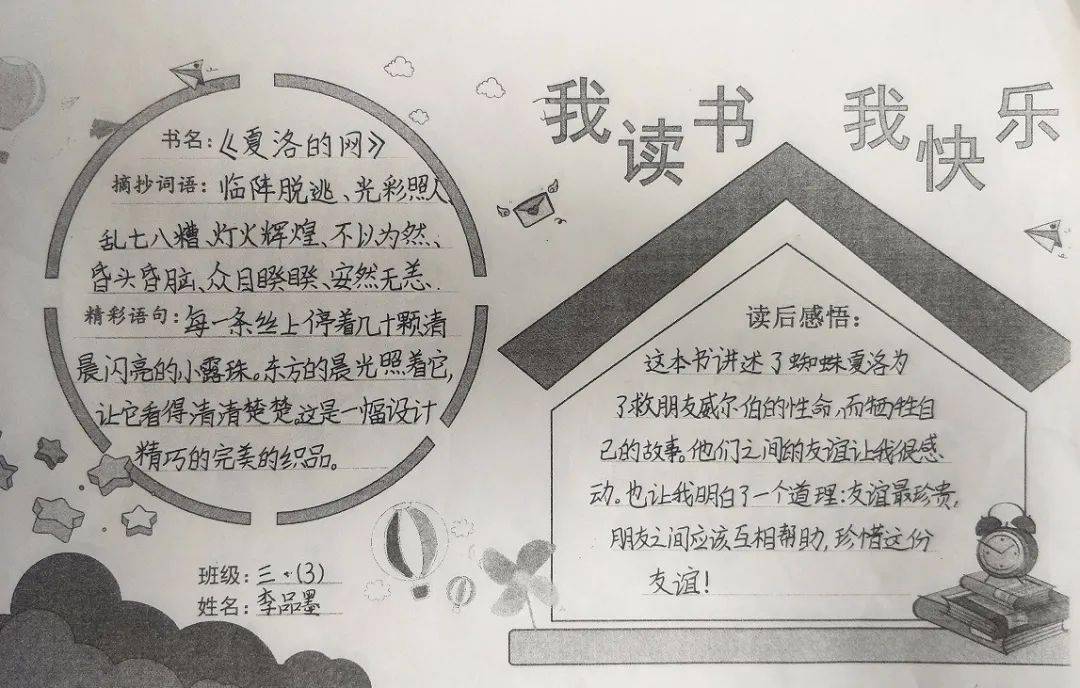 我读书 我快乐
书名：《夏洛的网》
摘抄词语：临阵脱逃、光彩照人、
乱七八糟、灯火辉煌、不以为然、
昏头昏脑、众目睽睽、安然无恙.
精彩语句：每一条丝上停着几十颗清
晨闪亮的小露珠。东方的晨光照着它，
让它看得清清楚楚，这是一幅设计
精巧的完美的织品。
班级：三·(3)
姓名：李品墨
读后感悟：
这本书讲述了蜘蛛夏洛为
了救朋友威尔伯的性命，而牺牲自
己的故事。他们之间的友谊让我很感
动。也让我明白了一个道理：友谊最珍贵，
朋友之间应该互相帮助，珍惜这份
友谊！